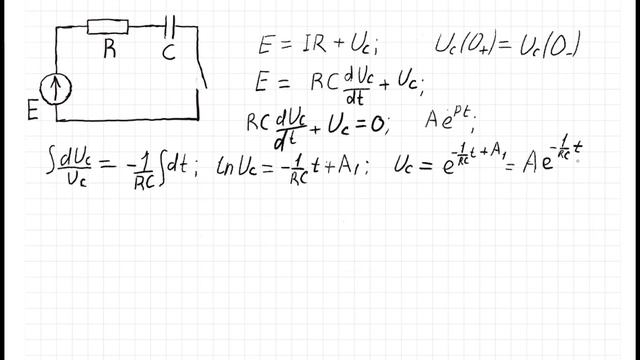 R C
E
E = IR + Uc; Uc(0+) = Uc(0-)
E = RC dUc/dt + Uc;
RC dUc/dt + Uc = 0; Ae^pt;
∫ dUc/Uc = -1/RC ∫dt; ln Uc = -1/RC t + A1; Uc = e^(-1/RC t + A1) = Ae^(-1/RC t)